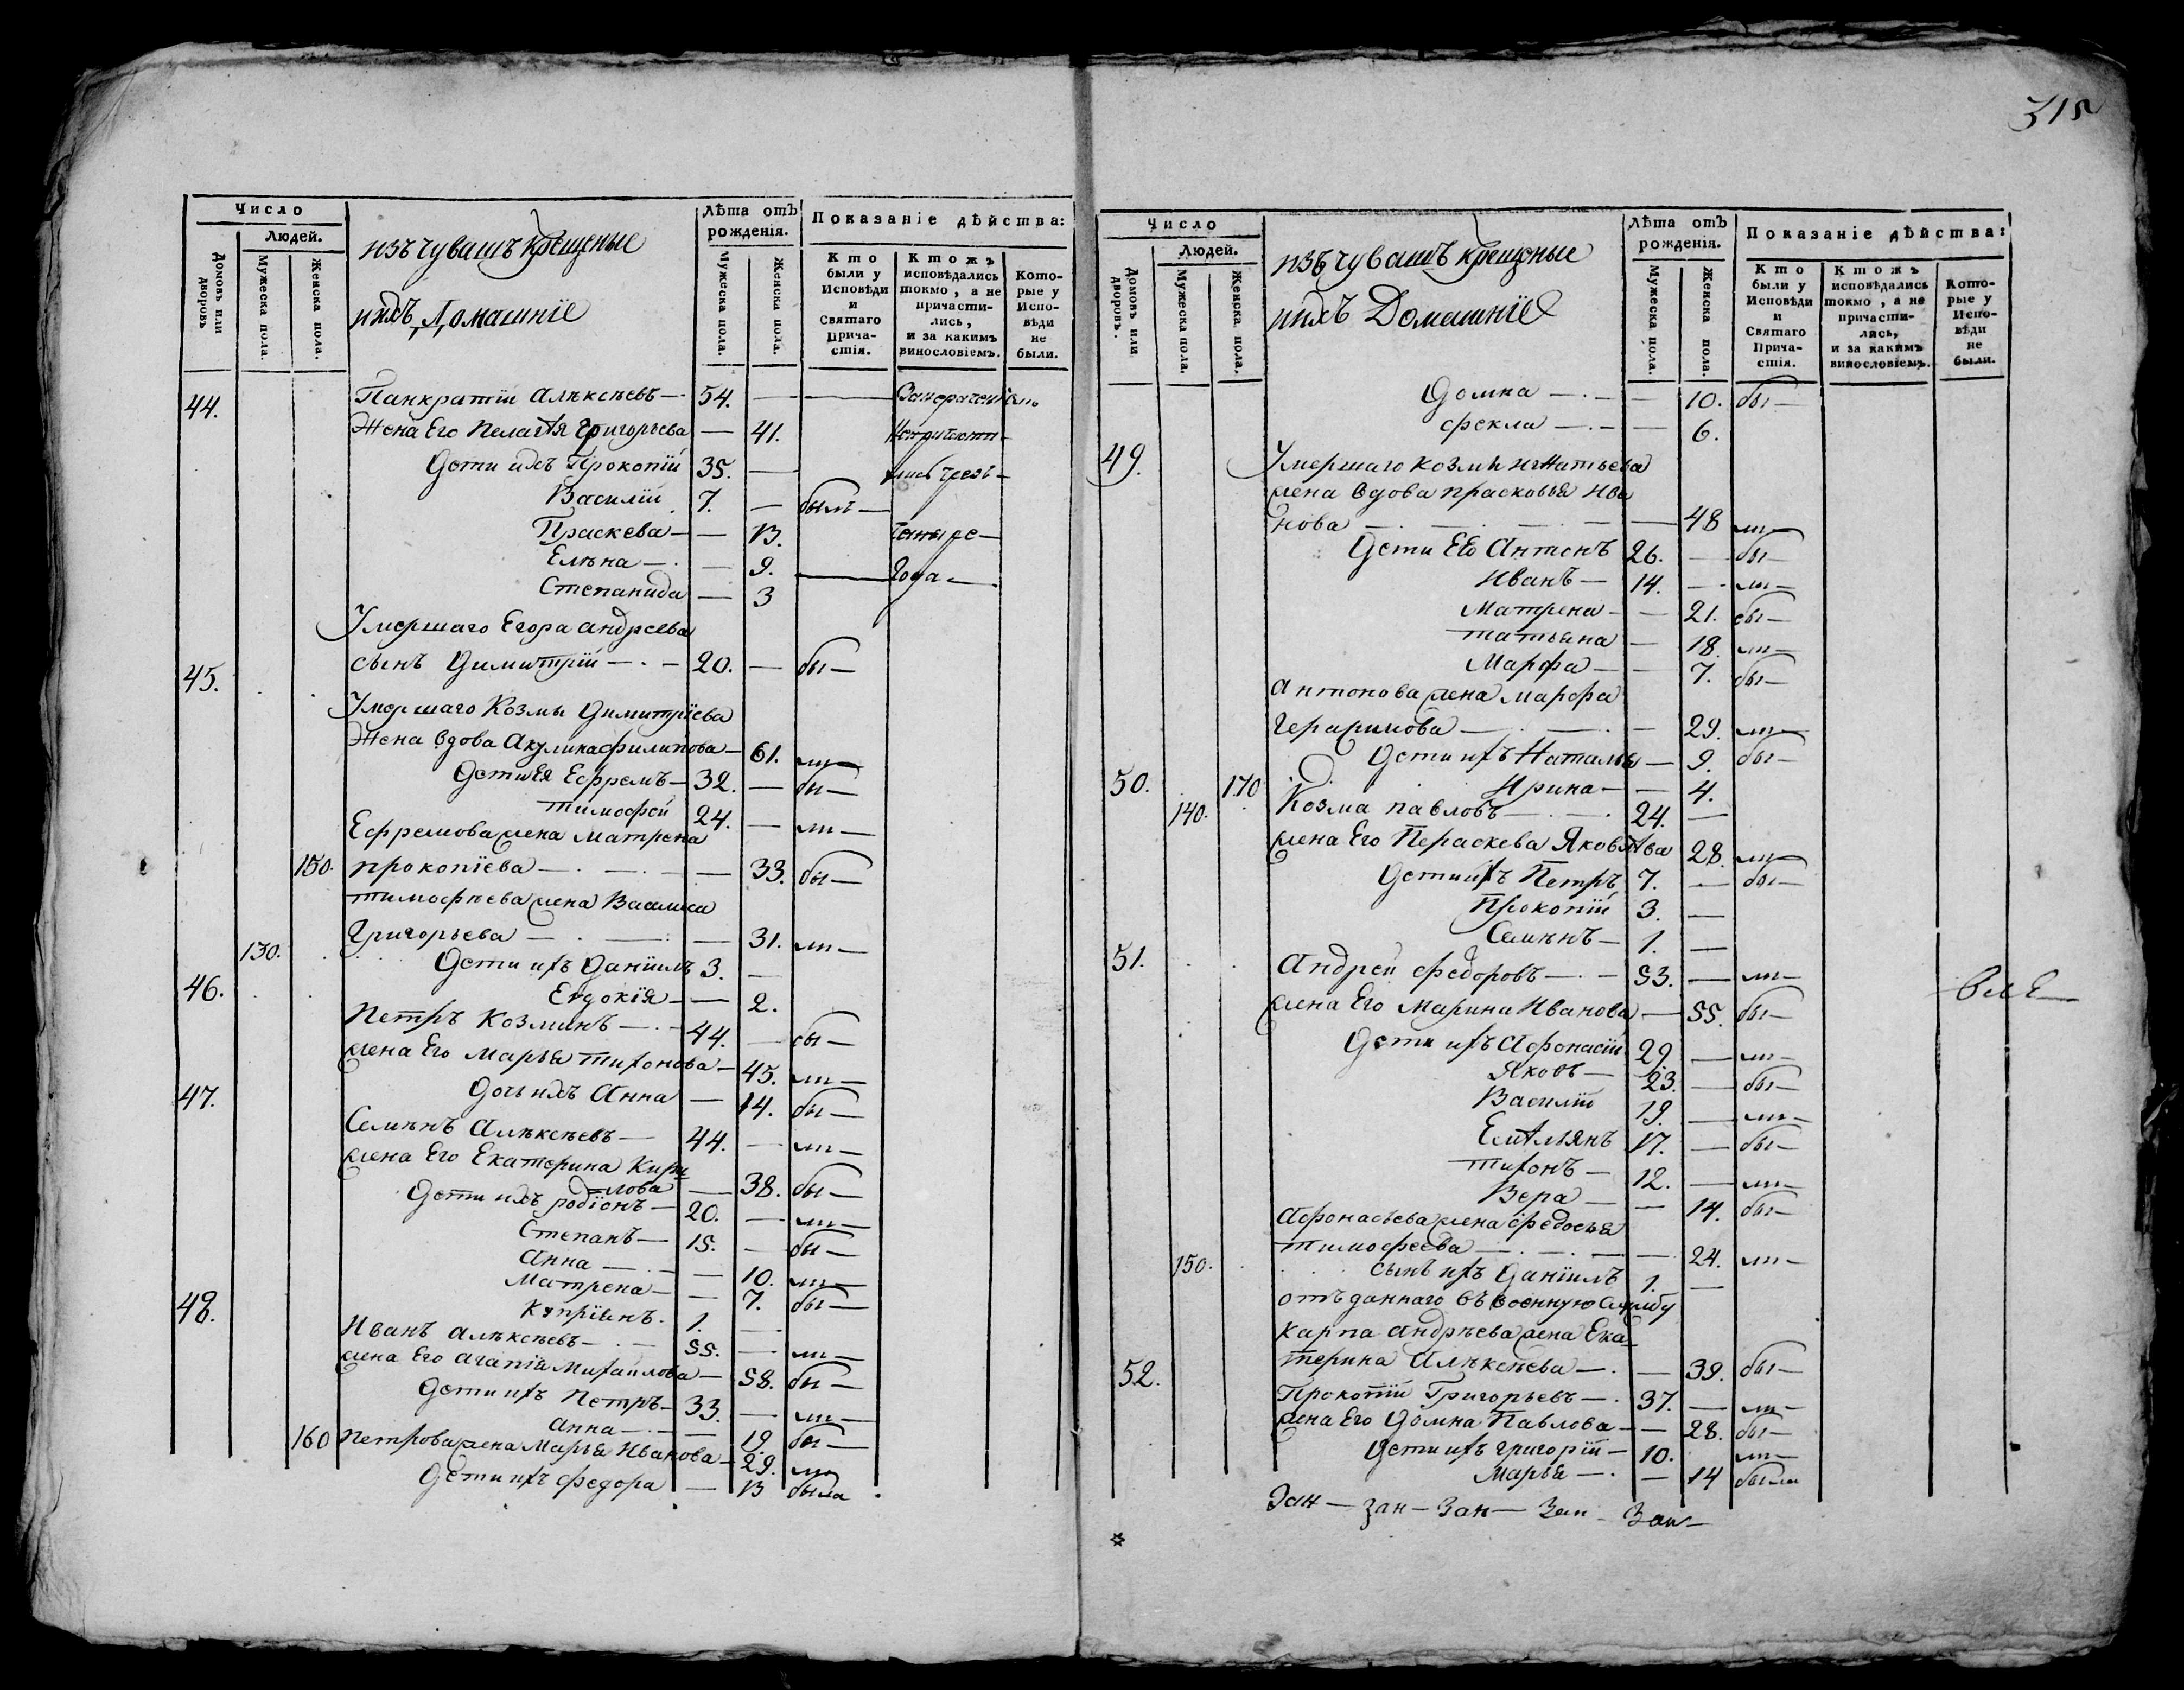 315
Число
Людей.
Домовъ или дворовъ
Мужеска пола.
Женска пола.
изъ чувашъ крещеные
ихъ Домашніе
Лѣта отъ рожденія.
Мужеска пола.
Женска пола.
Показаніе дѣйства:
Кто были у Исповѣди и Святаго Причастія.
Ктожъ исповѣдались токмо, а не причастились, и за какимъ винословіемъ.
Которые у Исповѣди не были.
44. Панкратій Алѣксѣевъ — 54. —
Жена Его Пелагѣя Григорьева — 41.
Дети ихъ Прокопій 35. —
Василій 7. — былъ —
Праскева — — 13. четыре —
Елѣна — — 9. — года —
Степанида — 3
Умершаго Егора Андреева
45. сынъ Димитрій — 20. — бы —
Умершаго Козмы Димитріева
Жена вдова Акулина филипова — 61. ли —
Дети Ея Ефремъ — 32. — бы —
Тимофей 24. — ли —
Ефремова жена Матрена
150. прокопіева — — — 33. бы —
тимофѣева жена Василиса
130. Григорьева — — — 31. ли —
Дети ихъ Даніилъ 3. —
46. Евдокія — — 2.
Петръ Козминъ — 44. — бы —
жена Его Марья тихонова — 45. ли —
47. Дочь ихъ Анна — 14. бы —
Семѣнъ Алѣксѣевъ — 44. — ли —
жена Его Екатерина Кири
лова — 38. бы —
Дети ихъ родіонъ — 20. — ли —
Степанъ — 15. — бы —
Анна — — 10. ли —
Матрена — — 7. бы —
48. Купріянъ. 1. —
Иванъ алѣксѣевъ — 55. — ли —
жена Его агапія Михаилова — 58. бы —
Дети ихъ Петръ — 33. — ли —
Анна — — 19. бы —
160 Петрова жена Марья Иванова — 29. ли
Дети ихъ федора — 13 была
Число
Людей.
Домовъ или дворовъ.
Мужеска пола.
Женска пола.
изъ чувашъ крещоные
ихъ Домашніе
Лѣта отъ рожденія.
Мужеска пола.
Женска пола.
Показаніе дѣйства:
Кто были у Исповѣди и Святаго Причастія.
Ктожъ исповѣдались токмо, а не причастились, и за какимъ винословіемъ.
Которые у Исповѣди не были.
Домна — — 10. бы —
фекла — — 6.
49. Умершаго козмы игнатьева
жена вдова прасковья Ива
нова — — — — 48 ли —
Дети Его Антонъ 26. — бы —
Иванъ — 14. — ли —
Матрена — — 21. бы —
татьяна — 18. ли —
Марфа — — 7. бы —
антонова жена марфа
Герасимова — — — 29. ли —
Дети ихъ Наталья — 9. бы —
50. 170 Ирина — — 4.
140. Козма павловъ — 24. —
жена Его Пераскева Яковлѣва 28. ли —
Дети ихъ Петръ 7. — бы —
Прокопій 3. —
Семѣнъ — 1. —
51. Андрей федоровъ — 53. — ли —
жена Его Марина Иванова — 55. бы —
Дети ихъ Афонасій 29. — ли —
Яковъ — 23. — бы —
Василій 19. — ли —
Емѣльянъ 17. — бы —
тихонъ — 12. — ли —
Вера — — 14. бы —
Афонасьева жена федосья
150. тимофеева — — — 24. ли —
сынъ ихъ Даніилъ 1. —
отъ даннаго въ военную службу
карпа андрѣева жена Ека
терина Алѣксѣева — — 39. бы —
52. Прокопій Григорьевъ — 37. — ли —
жена Его Домна Павлова — — 28. бы —
Дети ихъ григорій — 10. ли —
Марья — — 14 были